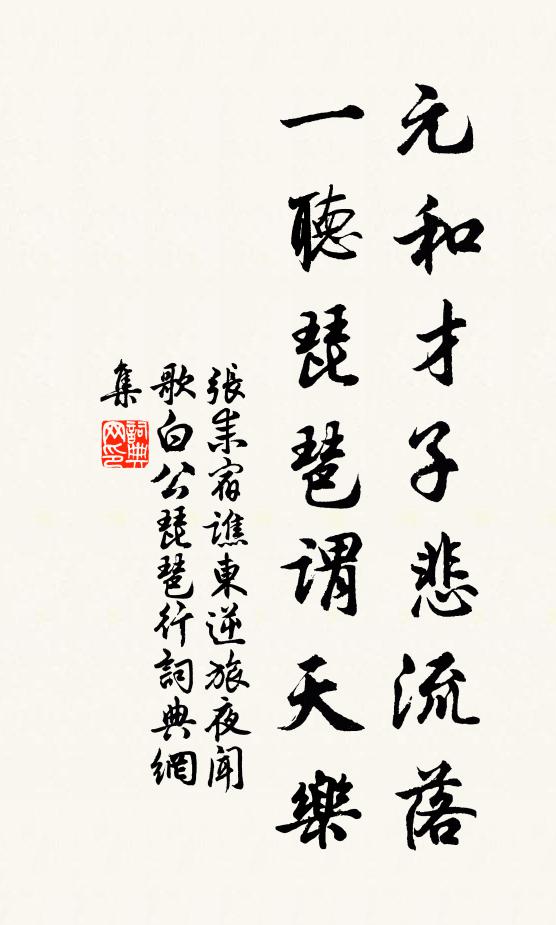 元和才子悲流落
一聽琵琶謂天樂
張耒宿譙東逆旅夜聞
歌白公琵琶行詞典網
集
詞典網印